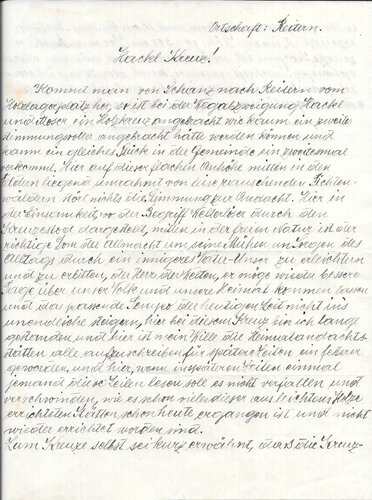 Ortschaft: Reitern.
Hackl Kreuz!
Kommt man von Schanz nach Reitern vom
her, so ist bei der Wegabzweigung Hackl
und Moser ein Holzkreuz angebracht wie kaum ein zweites
stimmungsvoller angebracht hätte werden können, und
kaum ein gleiches Stück in der Gemeinde ein zweitesmal
vorkommt. Hier auf dieser flachen Anhöhe mitten in den
Feldern liegend umrahmt von leise rauschenden Fichten-
wäldern stört nichts die Stimmung zur Andacht. Hier in
der Einsamkeit, wo der Begriff Welterlöser durch den
Kreuzestod dargestellt, mitten in der freien Natur ist der
richtige Ort der Allmacht um seine Mühen um Sorgen des
Alltags durch ein inniges Vater-Unser zu erleichtern
und zu erbitten, der Herr der Welten, er möge wieder bessere
Tage über unser Volk und unsere Heimat kommen lassen
und das rasende Tempo der heutigen Zeit nicht ins
unendliche steigern, hier bei diesem Kreuz bin ich lange
gestanden und hier ist mein Wille die Heimatandachts
stätten alle aufzuschreiben für spätere Zeiten ein festerer
geworden, und hier, wenn in späteren Zeiten einmal
jemand diese Zeilen lesen soll es nicht verfallen und
verschwinden, wie es schon vielen dieser aus leichtem Holze
errichteten Stätten schon heute ergangen ist und nicht
wieder errichtet worden sind.
Zum Kreuze selbst sei kurz erwähnt, das die Kreuz-